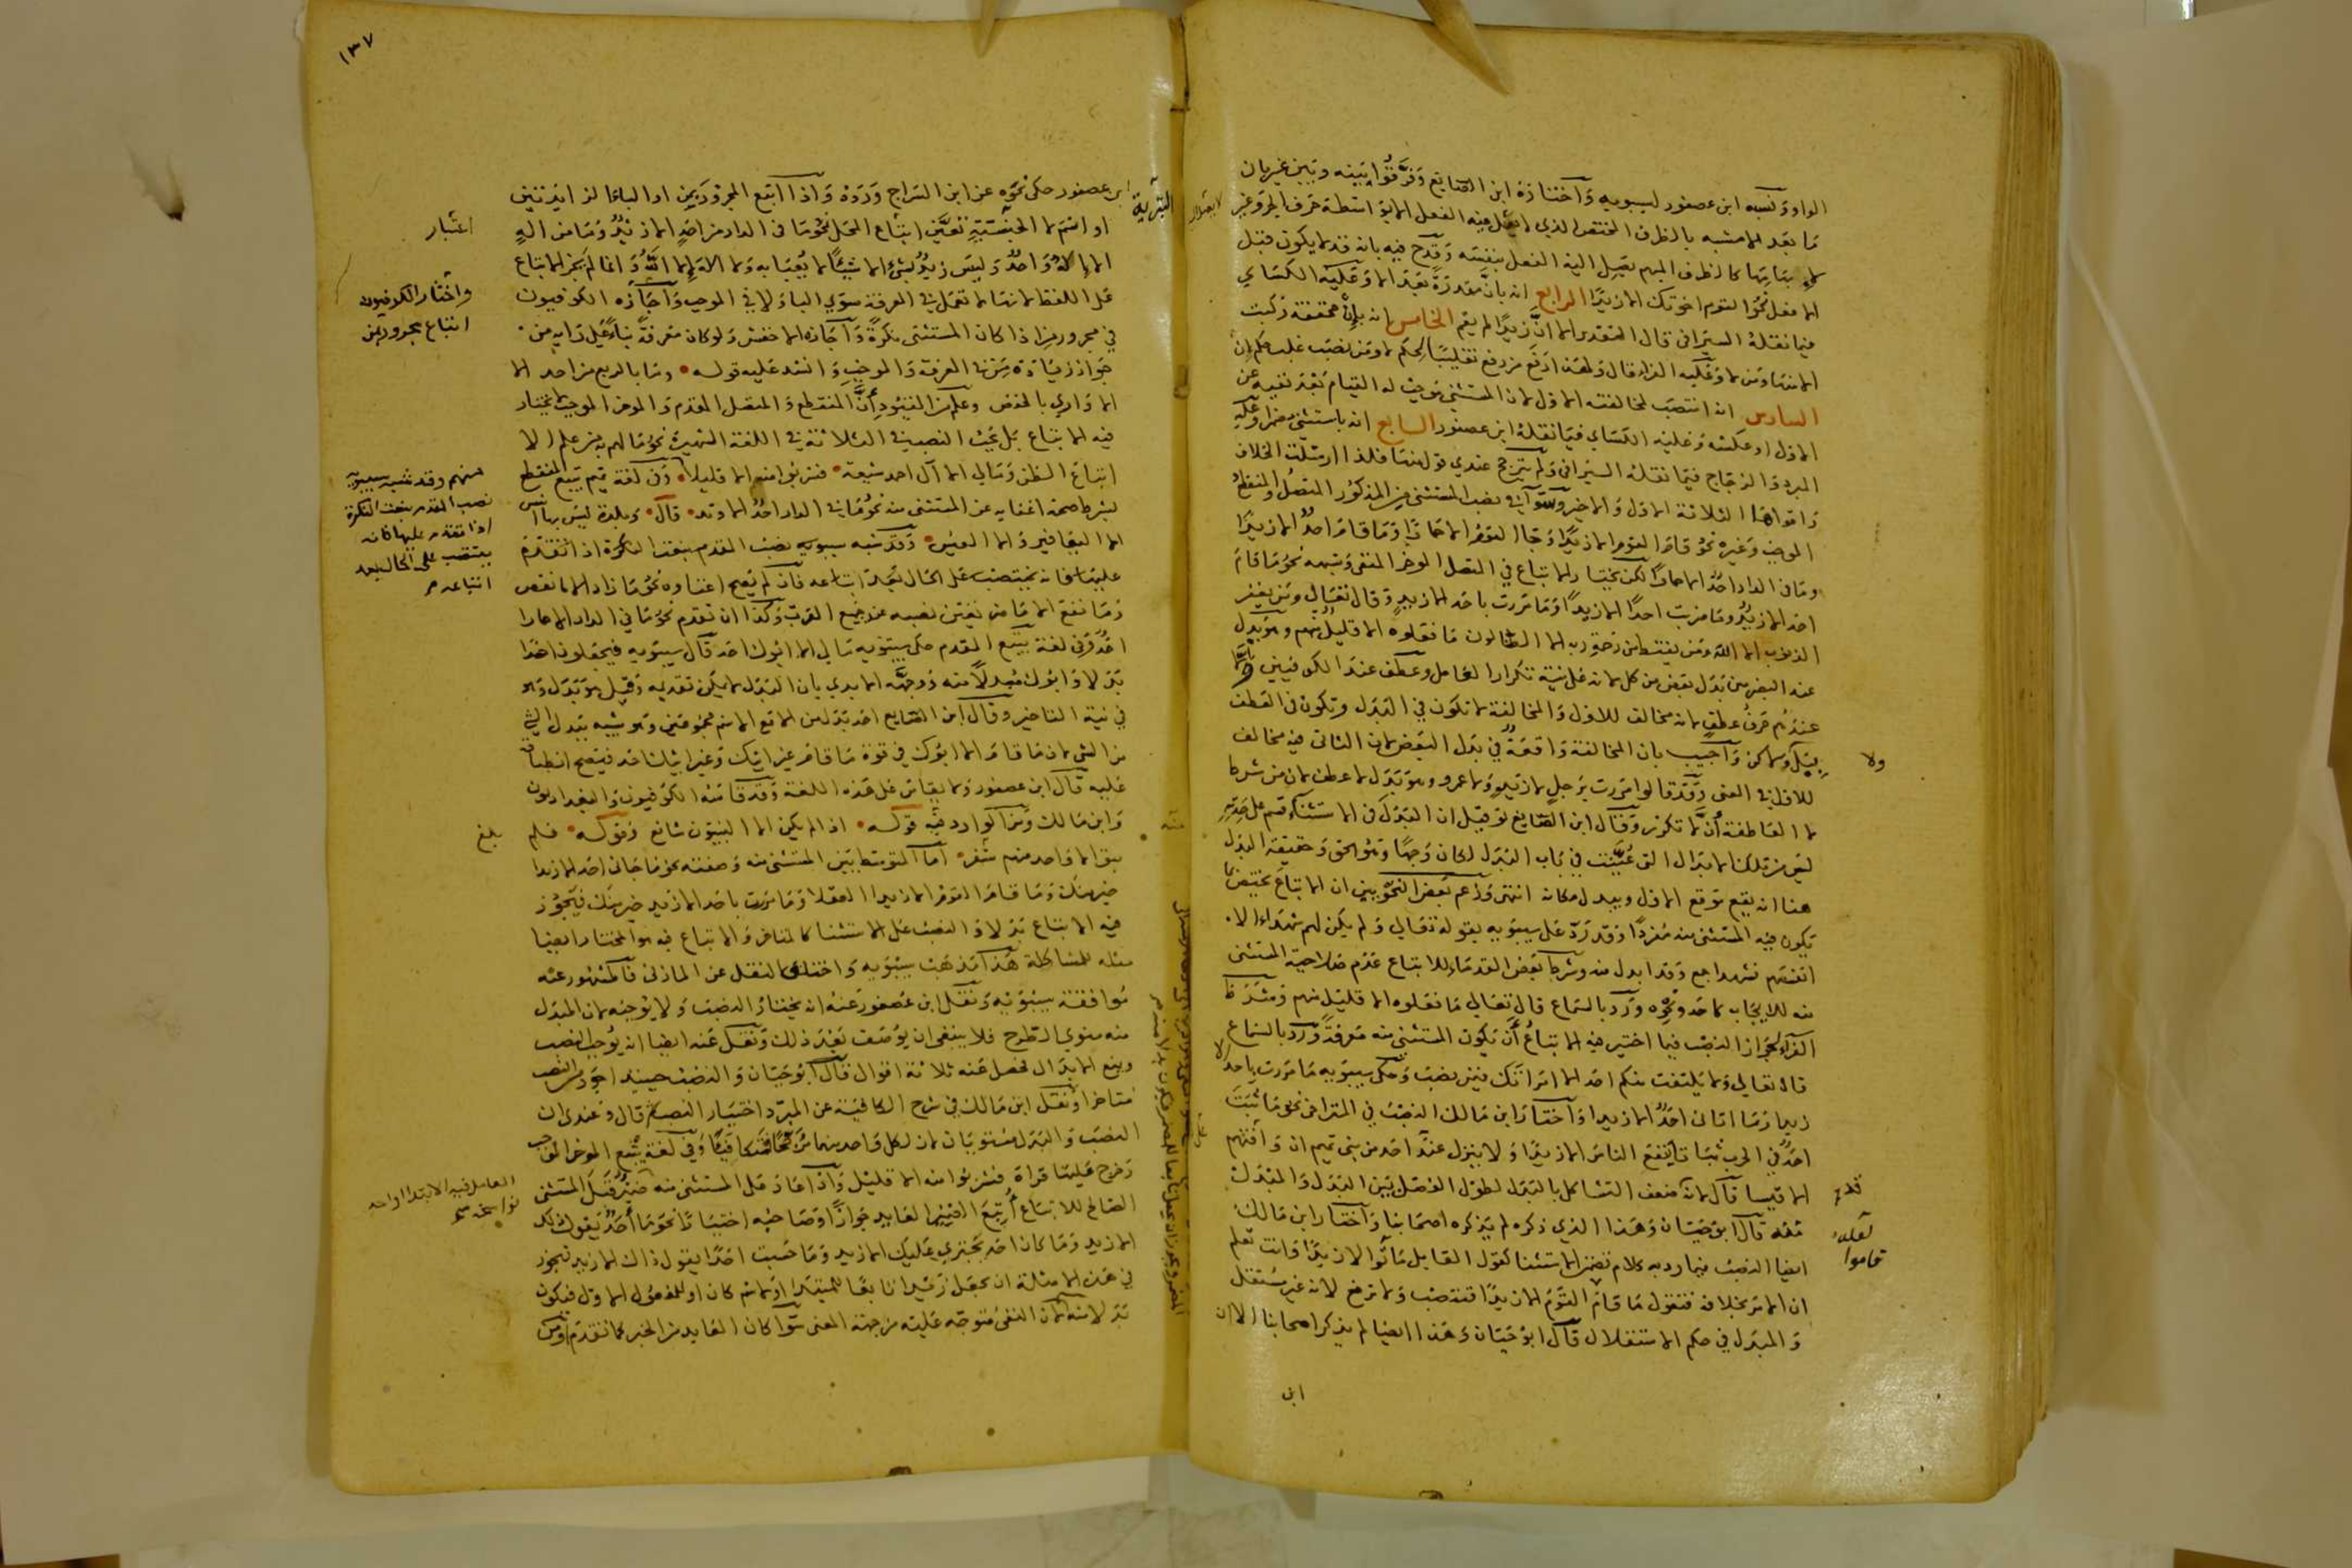 الواو ونسبه ابن عصفور لسيبويه واختاره ابن الضايع وفرقوا بينه وبين غير بان
ما بعد الا مشبه بالظرف المختص الذي لا يصل فيه الفعل الا بواسطة حرف الجر وغير
كالظرف المبهم يصل اليه الفعل بنفسه وقدح فيه بانه قد لا يكون قبل
الا فعل نحو القوم اخوتك الا زيدا الرابع انه بان مقدرة بعد الا وعليه الكساي
فيما نقله السيرافي قال التقدير الا ان زيدا لم يقم الخامس انه بان مخففة ركبت
الا منها ومن لا وعليه الفراء قال ولهذا رفع من رفع تغليبا لحكم لا ومن نصب غلب حكم ان
السادس انه انتصب لمخالفته الاول لان المستثنى موجب له القيام بعد نفيه عن
الاول او عكسه وعليه الكساي فيما نقله ابن عصفور السابع انه باستثنى مضمرا وعليه
المبرد والزجاج فيما نقله السيرافي ولم يترجح عندي قول منها فلذا ارسلت الخلاف
واقواها الثلاثة الاول والاخير وسوا في نصب المستثنى المذكور المتصل والمنقطع
الموجب وغيره نحو قام القوم الا زيدا وجا القوم الا حمارا وما قام احد الا زيدا
وما في الدار احد الا حمارا لكن يختار الاتباع في المتصل الموخر المنفي وشبهه نحو ما قام
احد الا زيد وما ضربت احدا الا زيدا وما مررت باحد الا زيد وقال تعالى ومن يغفر
الذنوب الا الله ومن يقنط من رحمة ربه الا الضالون ما فعلوه الا قليل منهم وهو بدل
عند البصريين بدل بعض من كل لانه على نية تكرار العامل وعطف عند الكوفيين والا
عندهم حرف عطف لانه مخالف للاول والمخالفة لا تكون في البدل وتكون في العطف
ببل ولا ولكن واجيب بان المخالفة واقعة في بدل البعض لان الثاني فيه مخالف
للاول في المعنى وقد قالوا مررت برجل لا زيد ولا عمرو وهو بدل لا عطف لان من شرط
لا العاطفة ان لا تكرر وقال ابن الضايع لو قيل ان البدل في الاستثناء قسم على حدته
ليس من تلك الابدال التي عينت في باب البدل لكان وجها وهو الحق وحقيقة البدل
هنا انه يقع موقع الاول ويبدل مكانه انتهى وزعم بعض النحويين ان الاتباع يختص بما
يكون فيه المستثنى منه مفردا وقد رد على سيبويه بقوله تعالى ولم يكن لهم شهداء الا
انفسهم فشهدا جمع وقد ابدل منه وشرط بعض القدماء للاتباع عدم صلاحية المستثنى
منه للايجاب كاحد ونحوه ورد بالسماع قال تعالى ما فعلوه الا قليل منهم وشرط
الفراء لجواز النصب فيما اختير فيه الاتباع ان يكون المستثنى منه معرفة ورد بالسماع
قال تعالى ولا يلتفت منكم احد الا امراتك فيمن نصب وحكى سيبويه ما مررت باحد الا
زيدا وما اتاني احد الا زيدا واختار ابن مالك النصب في المتراخي نحو ما ثبت
احد في الحرب ثباتا ينفع الناس الا زيدا ولا ينزل عندك احد من بني تميم ان وافتهم
الا قيسا قال لانه ضعف التشاكل بالبدل لطول الفصل بين البدل والمبدل
منه قال ابو حيان وهذا الذي ذكره لم يذكره اصحابنا واختار ابن مالك
ايضا النصب فيما رد به كلام تضمن الاستثنا كقول القايل قاموا الا زيدا وانت تعلم
ان الامر بخلافه فتقول ما قام القوم الا زيدا فتنصب ولا ترفع لانه غير مستقل
والمبدل في حكم الاستقلال قال ابو حيان وهذا ايضا لم يذكره اصحابنا الا ان
ابن
ولا
قاموا
١٣٧
ابن عصفور حكى نحوه عن ابن السراج ورده واذا اتبع المجرور بمن او الباء الزايدتين
او اسم لا الجنسية تعين اتباع المحل نحو ما في الدار من احد الا زيد وما من اله
الا اله واحد وليس زيد بشيء الا شيئا لا يعبا به ولا اله الا الله وانما لم يجز الاتباع
على اللفظ لانها لا تعمل في المعرفة سوى الباء ولا في الموجب واجازه الكوفيون
في مجرور من اذا كان المستثنى نكرة واجازه الاخفش ولو كان معرفة بناء على رايه من
جواز زيادة من في المعرفة والموجب وانشد عليه قوله وما بالربع من احد الا
الا واري بالخفض وعلم من القيود ان المنقطع والمتصل المقدم والموخر الموجب لا يختار
فيه الاتباع بل يجب النصب في الثلاثة في اللغة الشهيرة نحو ما لهم به من علم الا
اتباع الظن وما لي الا آل احمد شيعة فشربوا منه الا قليلا وفي لغة تميم يتبع المنقطع
بشرط صحة اغنايه عن المستثنى منه نحو ما في الدار احد الا وتد قال وبلدة ليس بها انيس
الا اليعافير والا العيس وقد شبه سيبويه نصب المقدم بنعت النكرة اذا تقدم
عليها فانه ينتصب على الحال بعد اتباعه فان لم يصح اغناوه نحو ما زاد الا ما نقص
وما نفع الا ما ضر تعين نصبه عند جميع العرب وكذا ان تقدم نحو ما في الدار الا حمارا
احد وفي لغة يتبع المقدم حكى سيبويه ما لي الا ابوك احد قال سيبويه فيجعلون احدا
بدلا وابوك مبدلا منه ووجهه الابدي بان البدل لا يمكن تقديمه وقيل هو بدل وهو
في نية التاخير وقال ابن الضايع احد بدل من الا مع الاسم مجموعين وهو شبيه ببدل الشي
من الشي لان ما قام الا ابوك في قوة ما قام غير ابيك وغير ابيك احد فيصح انطباقه
عليه قال ابن عصفور ولا يقاس على هذه اللغة وقد قاسه الكوفيون والبغداديون
وابن مالك ومما ورد فيه قوله اذا لم يكن الا النبيون شافع وقوله فلم
يبق الا واحد منهم شفر اما المتوسط بين المستثنى منه وصفته نحو ما جاني احد الا زيدا
خير منك وما قام القوم الا زيدا العقلا وما مررت باحد الا زيد خير منك فيجوز
فيه الاتباع بدلا والنصب على الاستثنا كالمتاخر والاتباع فيه هو المختار ايضا
مثله للمشاكلة هذا مذهب سيبويه واختلف النقل عن المازني فالمشهور عنه
موافقة سيبويه ونقل ابن عصفور عنه انه يختار النصب ولا يوجبه لان المبدل
منه منوي الطرح فلا ينبغي ان يوصف بعد ذلك ونقل عنه ايضا انه يوجب النصب
ويمنع الابدال فحصل عنه ثلاثة اقوال قال ابو حيان والنصب حينئذ اجود من النصب
متاخرا ونقل ابن مالك في شرح الكافية عن المبرد اختيار النصب قال وعندي ان
النصب والبدل مستويان لان لكل واحد منهما مرجحا فتكافيا وفي لغة يتبع الموخر الموجب
وخرج عليها قراة فشربوا منه الا قليل واذا عاد على المستثنى منه ضمير قبل المستثنى
الصالح للاتباع اتبع الضمير العايد جوازا وصاحبه اختيارا نحو ما احد يقول ذلك
الا زيد وما كان احد يجتري عليك الا زيد وما حسبت احدا يقول ذاك الا زيد فيجوز
في هذه الامثلة ان تجعل زيدا تابعا للمبتدا او لاسم كان او للمفعول الاول فيكون
بدلا منه لان النفي متوجه عليه من جهة المعنى سوا كان العايد من الخبر كما تقدم او من
واختار الكوفيون
اتباع مجرور من
منهم وقد شبه سيبويه
نصب المقدم بنعت النكرة
اذا تقدم عليها فانه
ينتصب على الحال بعد
اتباعه
بلغ